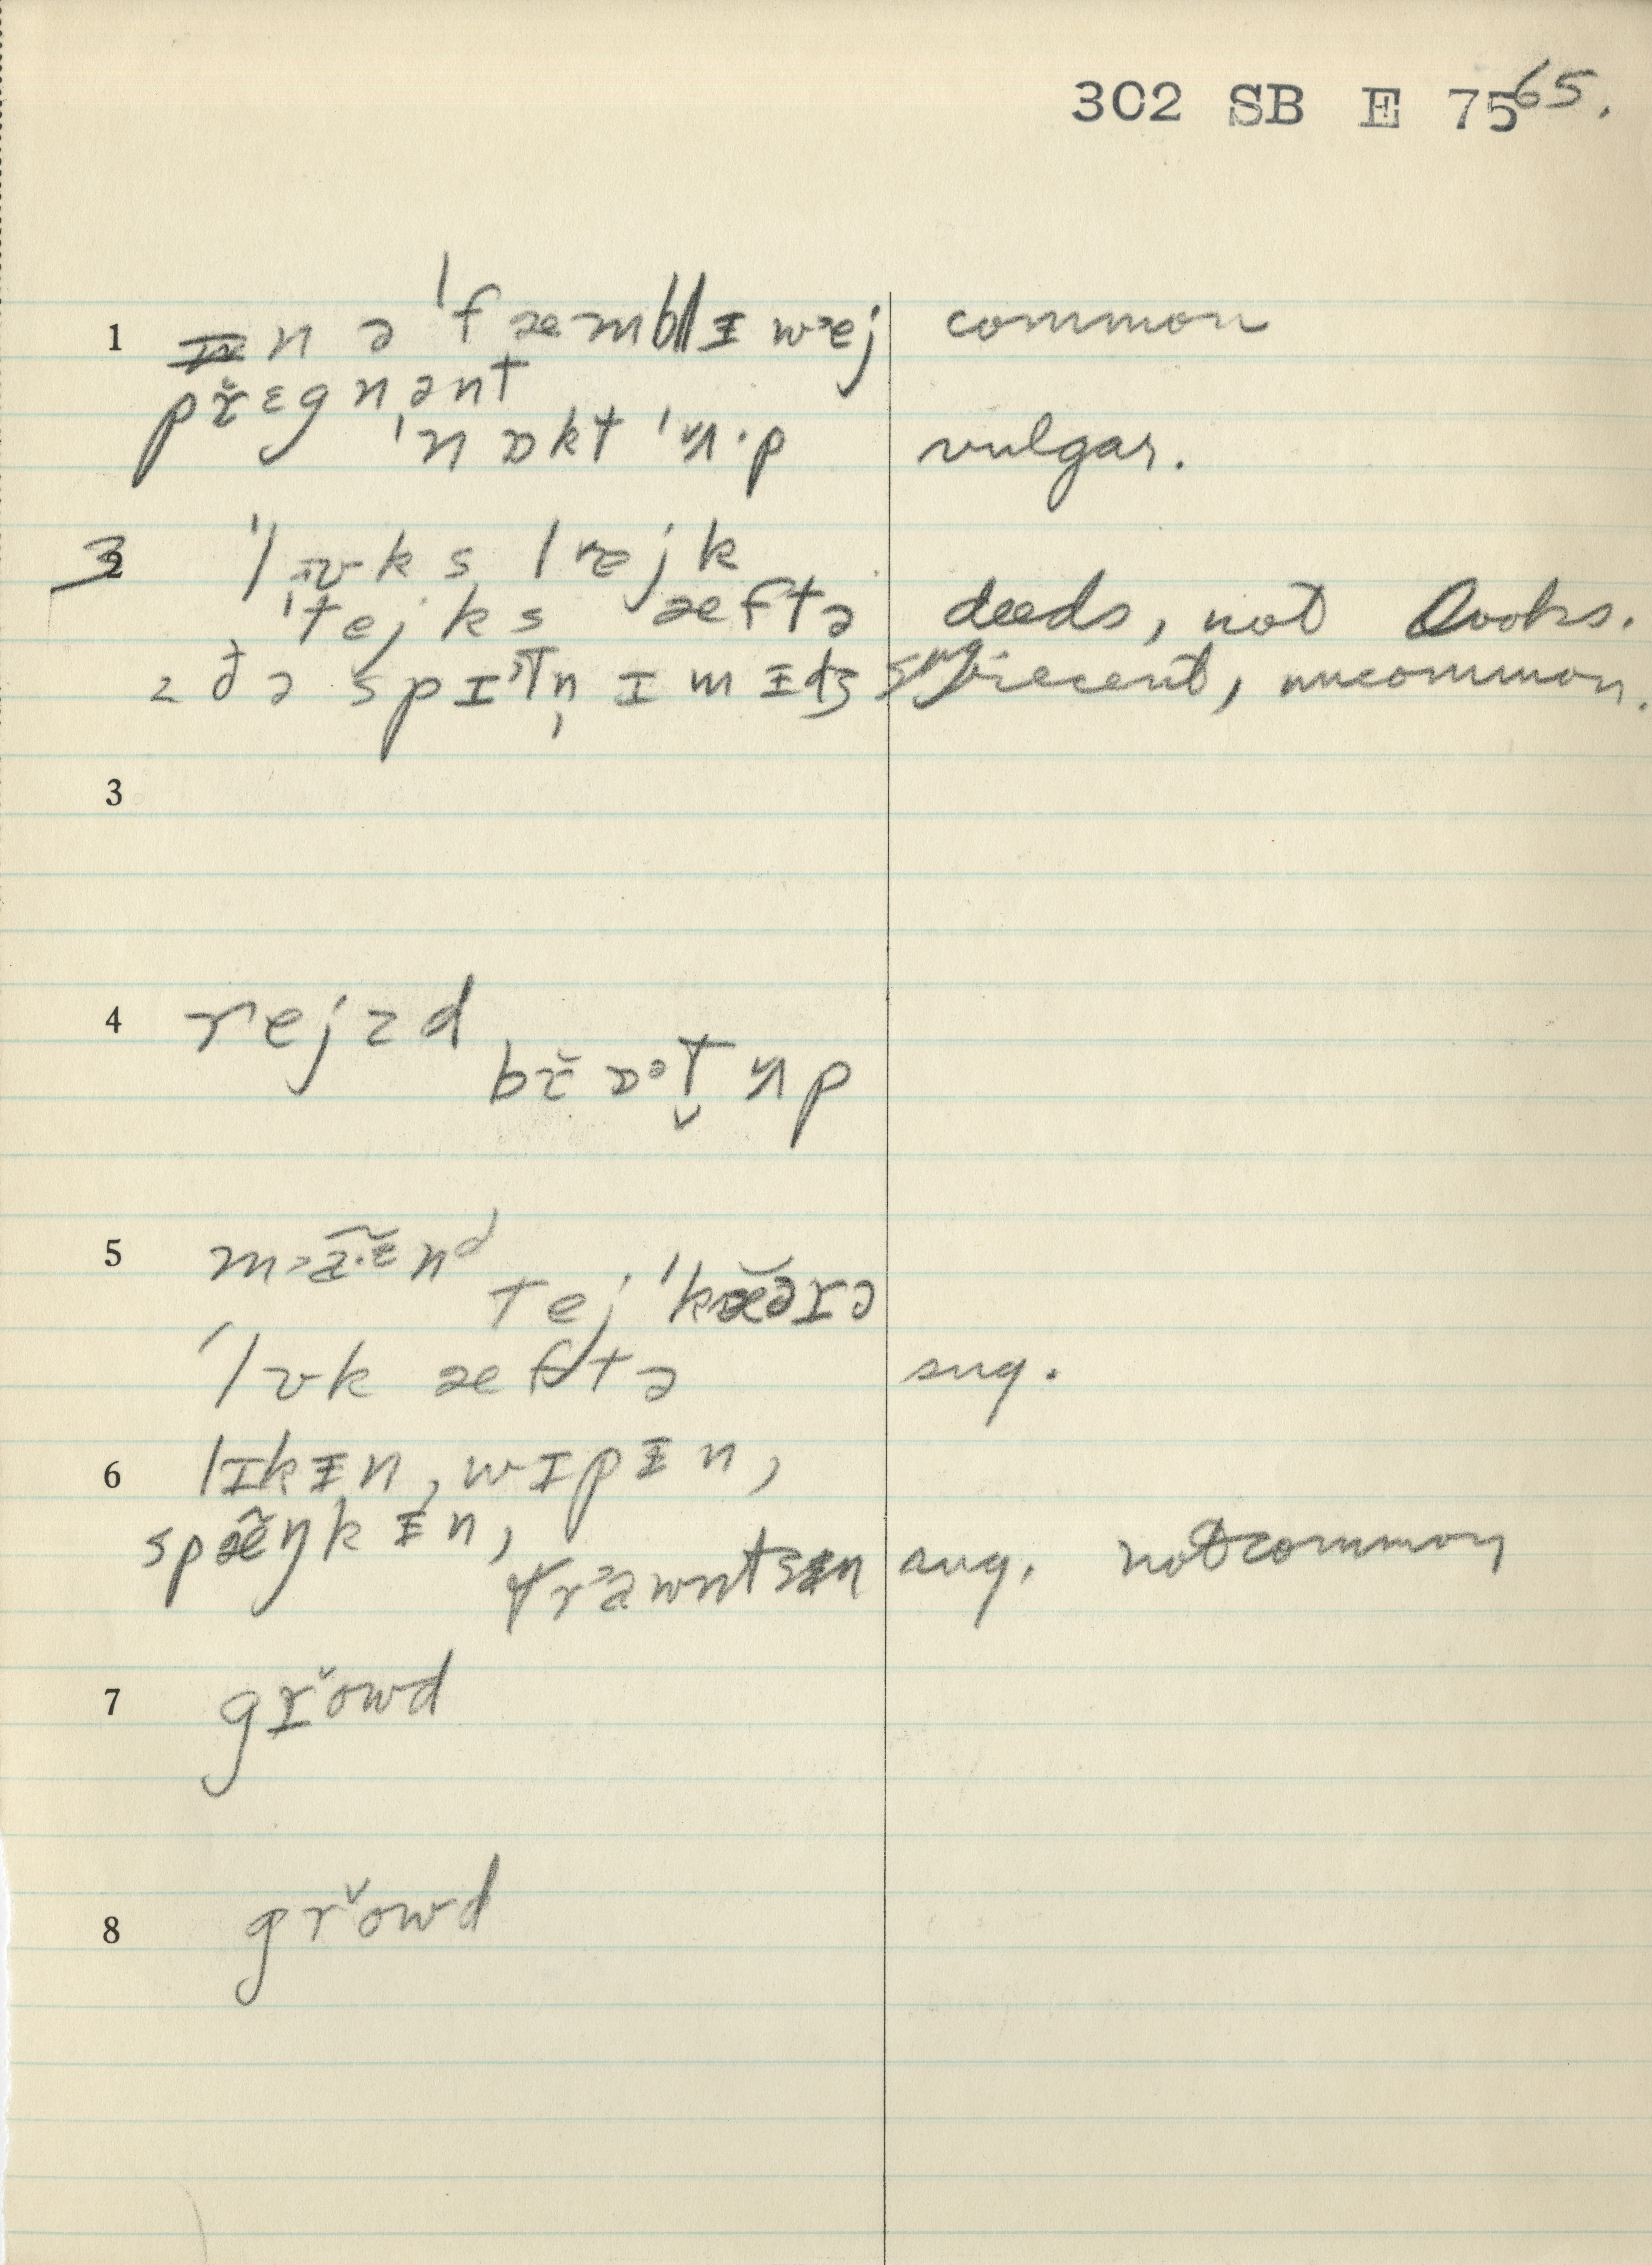 302 SB E 75 65.
1 n ə ˈfæmblɪ wɛj common
pr̆ɛgnənt
ˈnɒktˈʌ·p vulgar.
3 2 ˈlʊks lɐjk
ˈtejks æftə deeds, not looks.
z ðə spɪtn̩ ɪmɪdʒ sug recent, uncommon.
3
4 rejzd
br̆ɒˑt̬ ʌp
5 ma·ɪnd
tej ˈkæərə
ˈlʊk æftə sug.
6 lɪkɨn, wɪpɨn,
spæŋkɨn,
trawntsɨn sug. not common
7 gr̆owd
8 gr̆owd